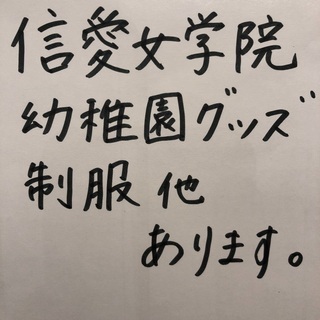 信愛女学院
幼稚園グッズ
制服 他
あります。